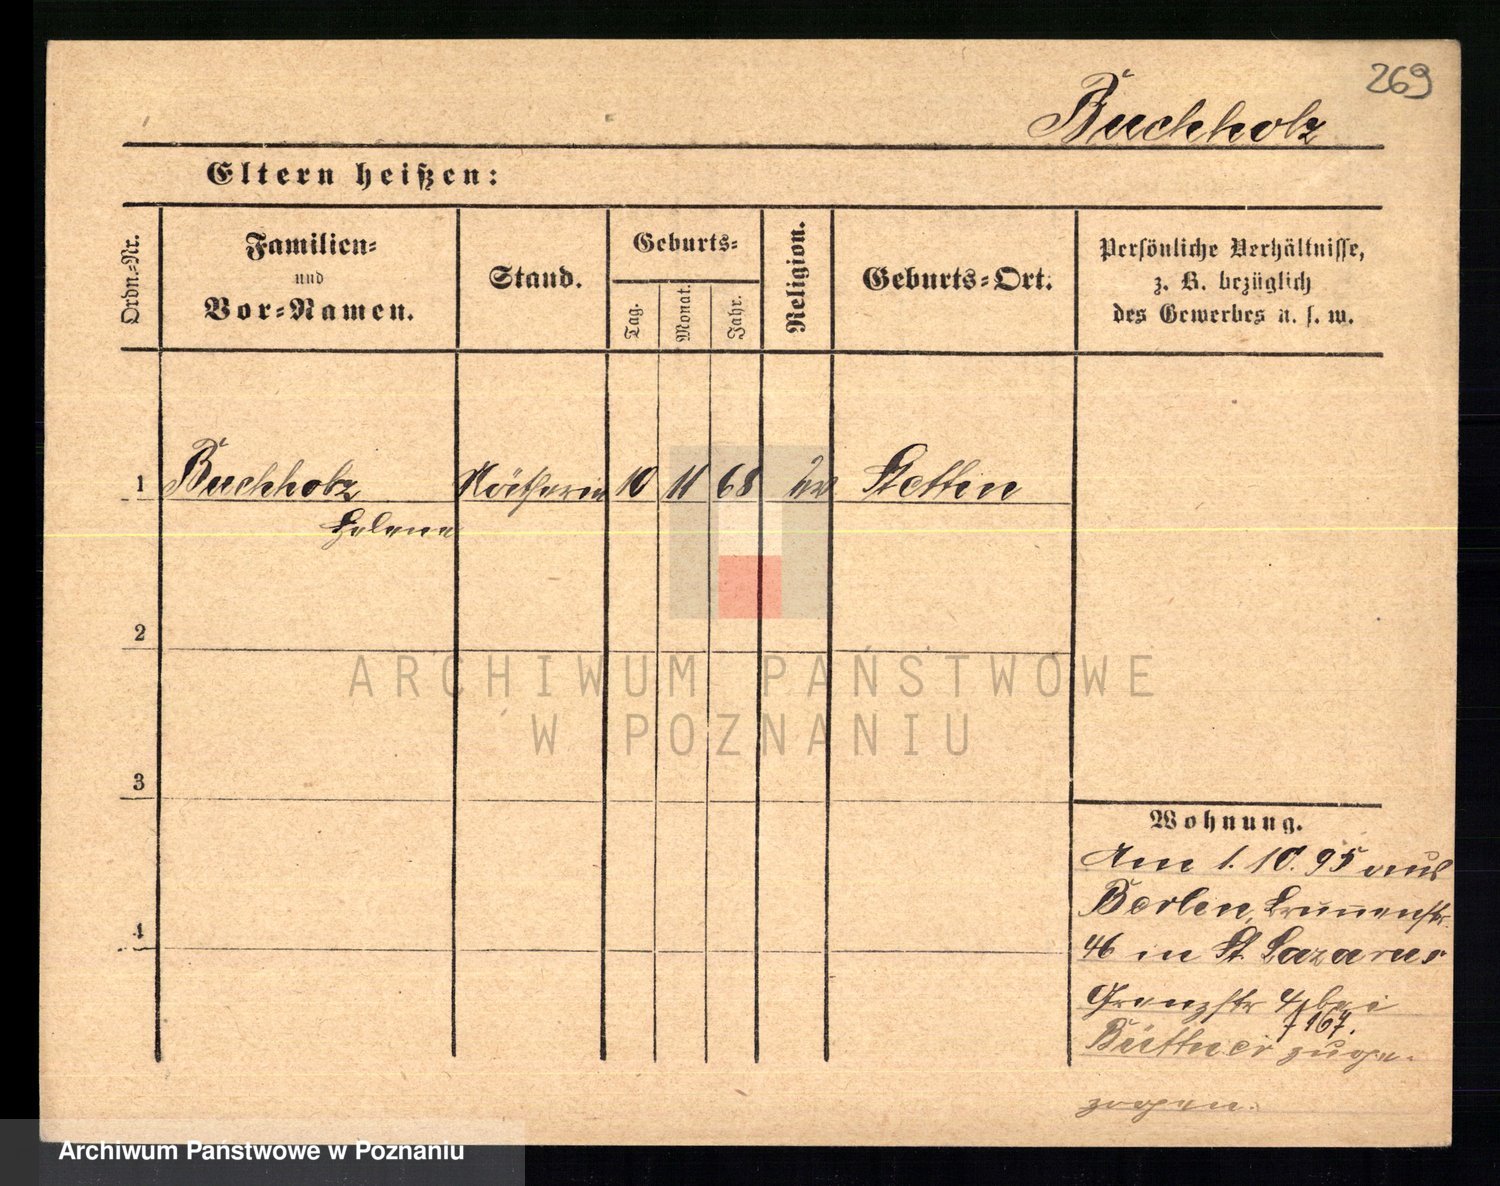 269
Buchholz
Eltern heißen:
Ordn.-Nr.
Familien-
und
Vor-Namen.
Stand.
Geburts-
Tag.
Monat.
Jahr.
Religion.
Geburts-Ort.
Persönliche Verhältnisse,
z. B. bezüglich
des Gewerbes u. s. w.
1 Buchholz Nätherin 10 11 68 ev Stettin
Helene
2
3
4
ARCHIWUM PAŃSTWOWE
W POZNANIU
Wohnung.
Am 1. 10. 95 aus
Berlin, Brunnenstr.
46 in St Lazarus
Grenzstr 4 bei
7167.
Büttner zuge-
zogen.
Archiwum Państwowe w Poznaniu